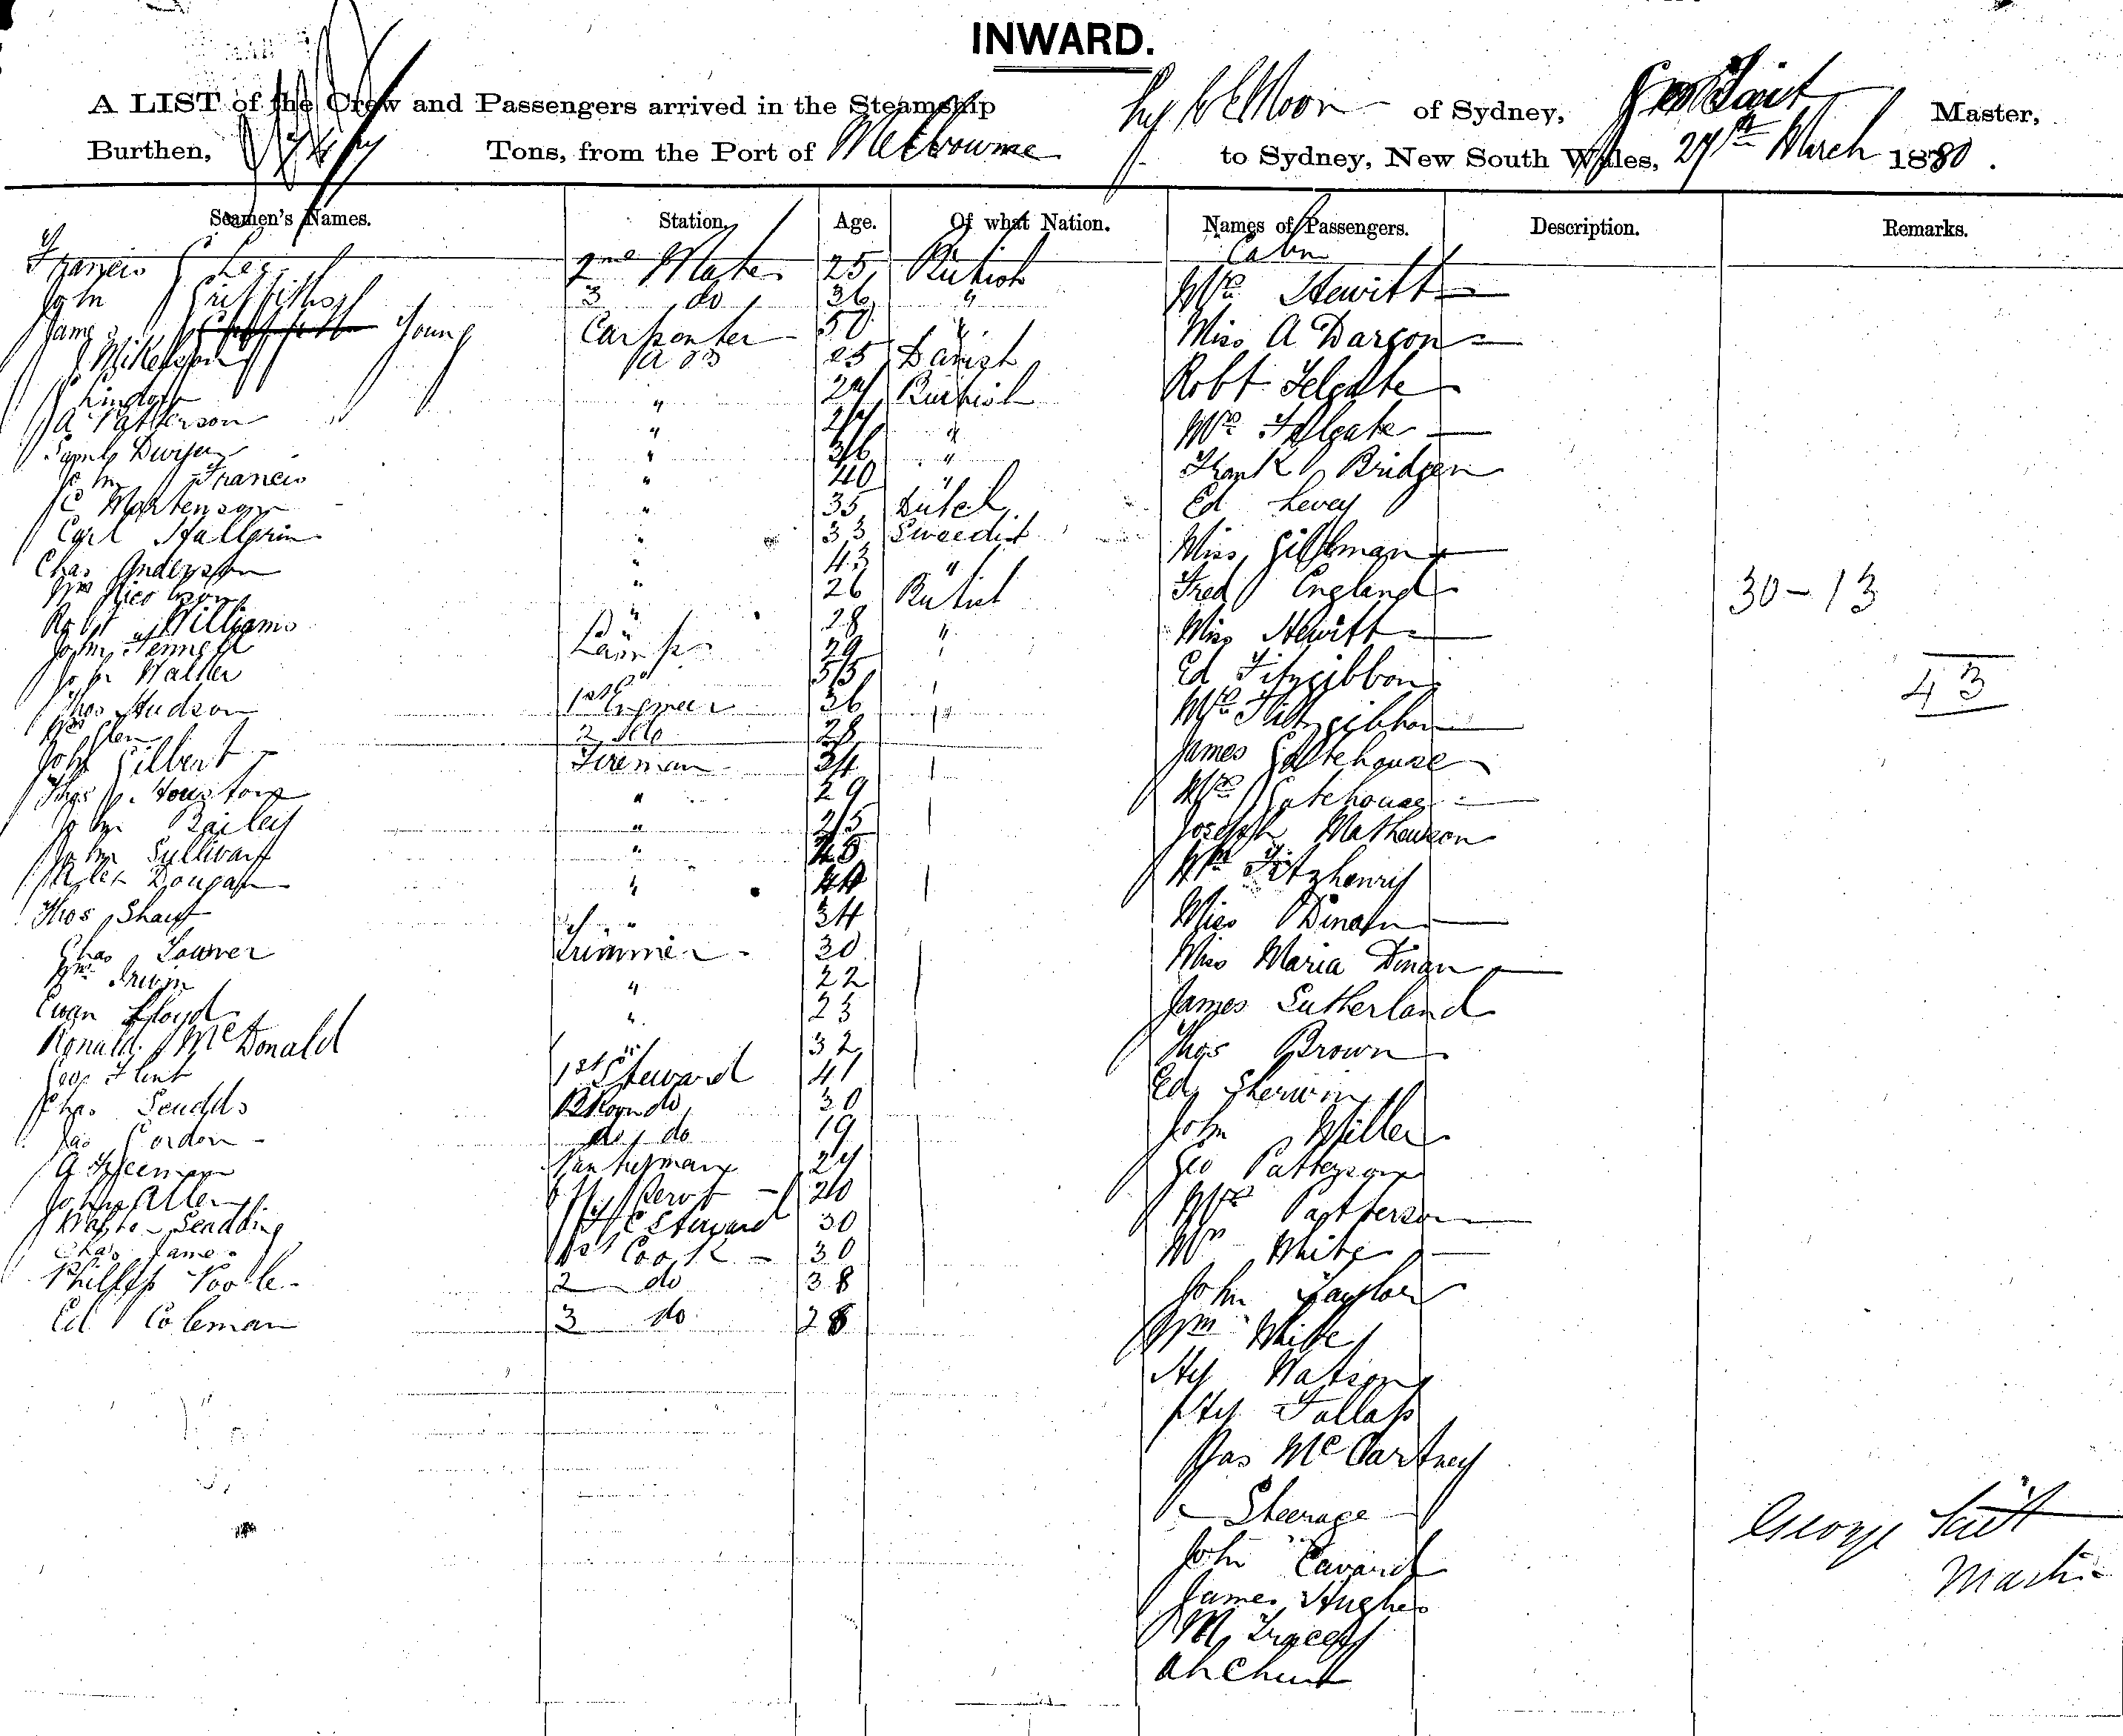 INWARD.
A LIST of the Crew and Passengers arrived in the Steamship Ly Ee Moon of Sydney, Geo Tait Master,
Burthen, Tons, from the Port of Melbourne to Sydney, New South Wales, 27th March 1880.
Seamen's Names. Station. Age. Of what Nation. Names of Passengers. Description. Remarks.
Cabin
Francis Lee 2nd Mate 25 British
Mrs Hewitt
John Griffiths 3 do 36 "
James Young Carpenter 50 "
Miss A Dargon
Mikelson A B 25 Danish
Robt Felgate
Lindoff " 24 British
A Patterson " "
Mrs Felgate
Saml Dwyer " 36 "
Frank Bridgen
John Francis " 40 "
C Martenson " 35 Dutch
Ed Levey
Carl Hallgrin " 33 Sweedish
Miss Gillman
Chas Anderson " 43 "
Wm Nicolson " 26 British
Fred England
30-13
Robt Williams " 28 "
Miss Hewitt
John Fennell Lamps 29 "
John Walker " 55
Ed Fitzgibbon
43
Thos Hudson 1st Engineer 36 "
Mrs Fitzgibbon
Wm Glen 2 do 28
John Gilbert Fireman 34
James Gatehouse
Thos Houston " 29
Mrs Gatehouse
John Bailey " 25
Joseph Mathewson
John Sullivan " 45
Wm Fitzhenry
Alex Dougan " 44
Thos Shaw " 34
Miss Dinan
Chas Lawver Trimmer 30
Miss Maria Dinan
Wm Irwin " 22
Ewan Lloyd " 23
James Sutherland
Ronald McDonald " 32
Thos Brown
Geo Flint 1st Steward 41
Ed Sherwin
Chas Scudds B Room do 30
Jas Gordon do do 19
John Miller
A Freeman Pantryman 24
Geo Patterson
John Allen 20
Mrs Patterson
Scadding F C Steward 30
Chas James 1st Cook 30
Mrs White
Phillip Poole 2 do 38
John Taylor
Ed Coleman 3 do 28
Wm White
Hy Watson
Hy Fallass
Jas McCartney
Steerage
George Tait
John Cavard
Master
James Hughes
M Tracey
Ah Chun